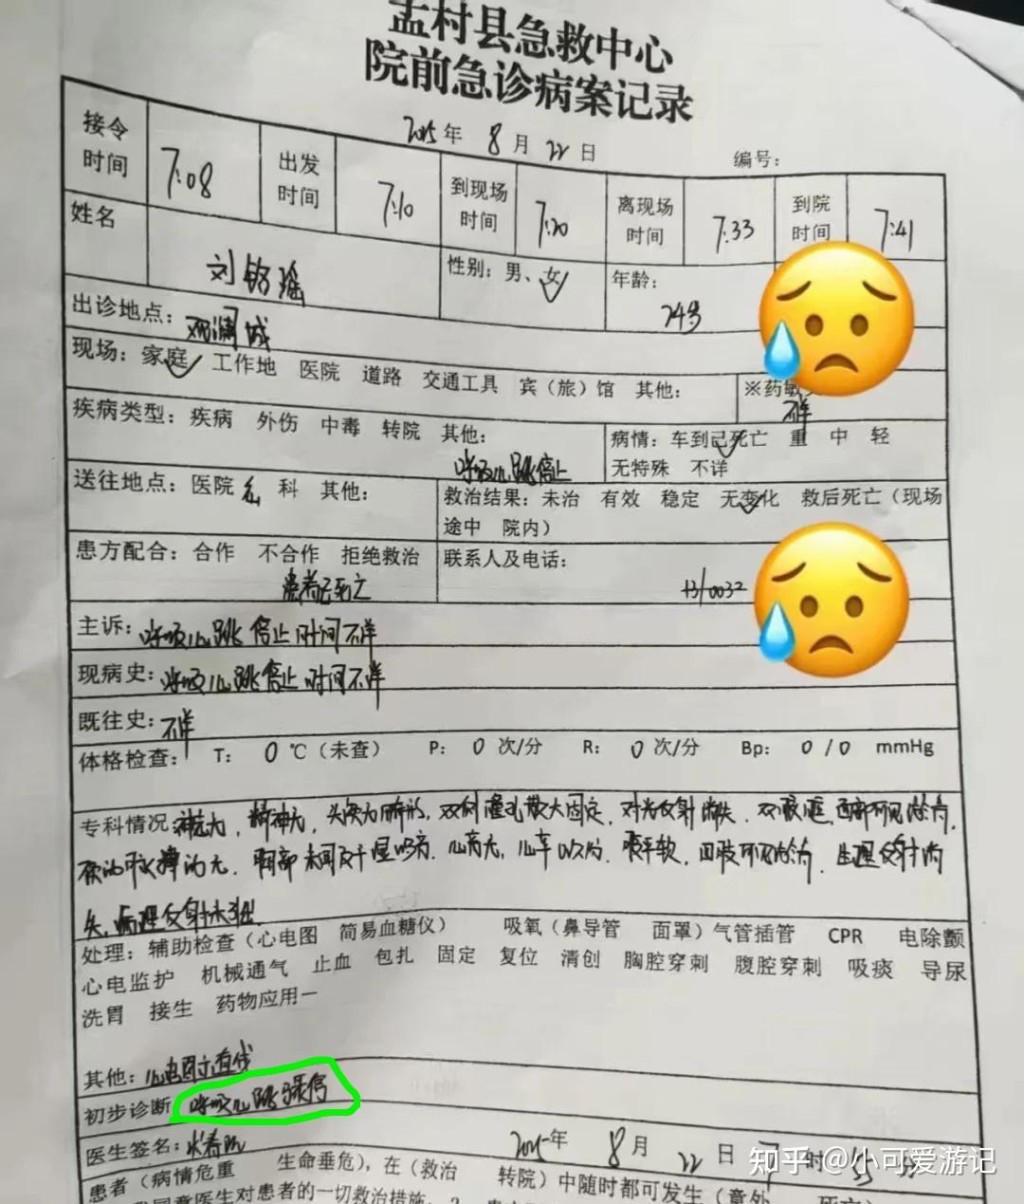 孟村县急救中心
院前急诊病案记录
2025年 8月 22日 编号:
接令时间 7:08 出发时间 7:10 到现场时间 7:20 离现场时间 7:33 到院时间 7:41
姓名 刘铭瑶 性别: 男、女✓ 年龄: 24岁
出诊地点: 观澜城
现场: 家庭✓ 工作地 医院 道路 交通工具 宾(旅)馆 其他: ※药敏 不详
疾病类型: 疾病 外伤 中毒 转院 其他: 呼吸心跳停止
病情: 车到已死亡✓ 重 中 轻
无特殊 不详
送往地点: 医院 科 其他:
救治结果: 未治 有效 稳定 无变化✓ 救后死亡(现场
途中 院内)
患方配合: 合作 不合作 拒绝救治 患者已死亡
联系人及电话:
主诉: 呼吸心跳停止时间不详
现病史: 呼吸心跳停止时间不详
既往史: 不详
体格检查: T: 0℃(未查) P: 0次/分 R: 0次/分 Bp: 0/0 mmHg
专科情况 神志无, 精神无, 头颅无畸形, 双侧瞳孔散大固定, 对光反射消失,
胸部未闻及干湿啰音, 心音无, 心率0次/分, 腹平软, 四肢可见 生理反射消
失, 病理反射未引出
处理: 辅助检查(心电图 简易血糖仪) 吸氧(鼻导管 面罩)气管插管 CPR 电除颤
心电监护 机械通气 止血 包扎 固定 复位 清创 胸腔穿刺 腹腔穿刺 吸痰 导尿
洗胃 接生 药物应用一
其他: 心电图示直线
初步诊断 呼吸心跳骤停
医生签名: 2025年 8月 22日 7时
患者(病情危重 生命垂危), 在(救治 转院)中随时都可发生(意外
医生对患者的一切救治措施
知乎 @小可爱游记